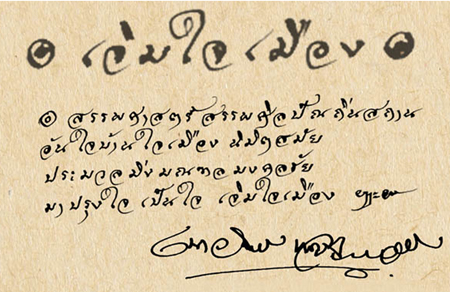 ๏ เจิมใจเมือง ๏
๏ สรรพศาสตร์สรรพศิลป์ณถิ่นสถาน
อันใจบ้านใจเมือง นิมิตสมัย
ประมวลมิ่งมณฑลมงคลชัย
มาปรุงใจ เป็นใจ เจิมใจเมือง ๚ะ๛